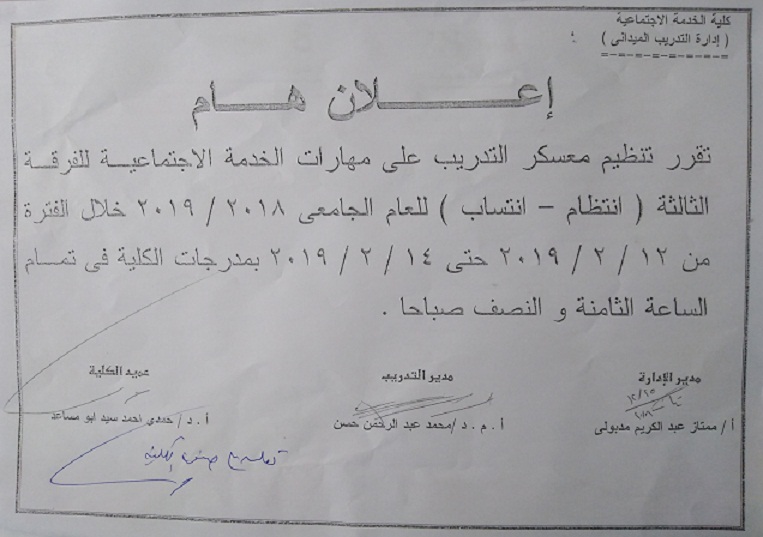 كلية الخدمة الاجتماعية
( إدارة التدريب الميدانى )
إعلان هام
تقرر تنظيم معسكر التدريب على مهارات الخدمة الاجتماعية للفرقة
الثالثة ( انتظام – انتساب ) للعام الجامعى ٢٠١٨ / ٢٠١٩ خلال الفترة
من ١٢ / ٢ / ٢٠١٩ حتى ١٤ / ٢ / ٢٠١٩ بمدرجات الكلية فى تمام
الساعة الثامنة و النصف صباحا .
مدير الإدارة
مدير التدريب
عميد الكلية
أ/ ممتاز عبد الكريم مدبولى
أ . م . د /محمد عبد الرحمن حسن
أ . د / حمدي احمد سيد ابو مساعد